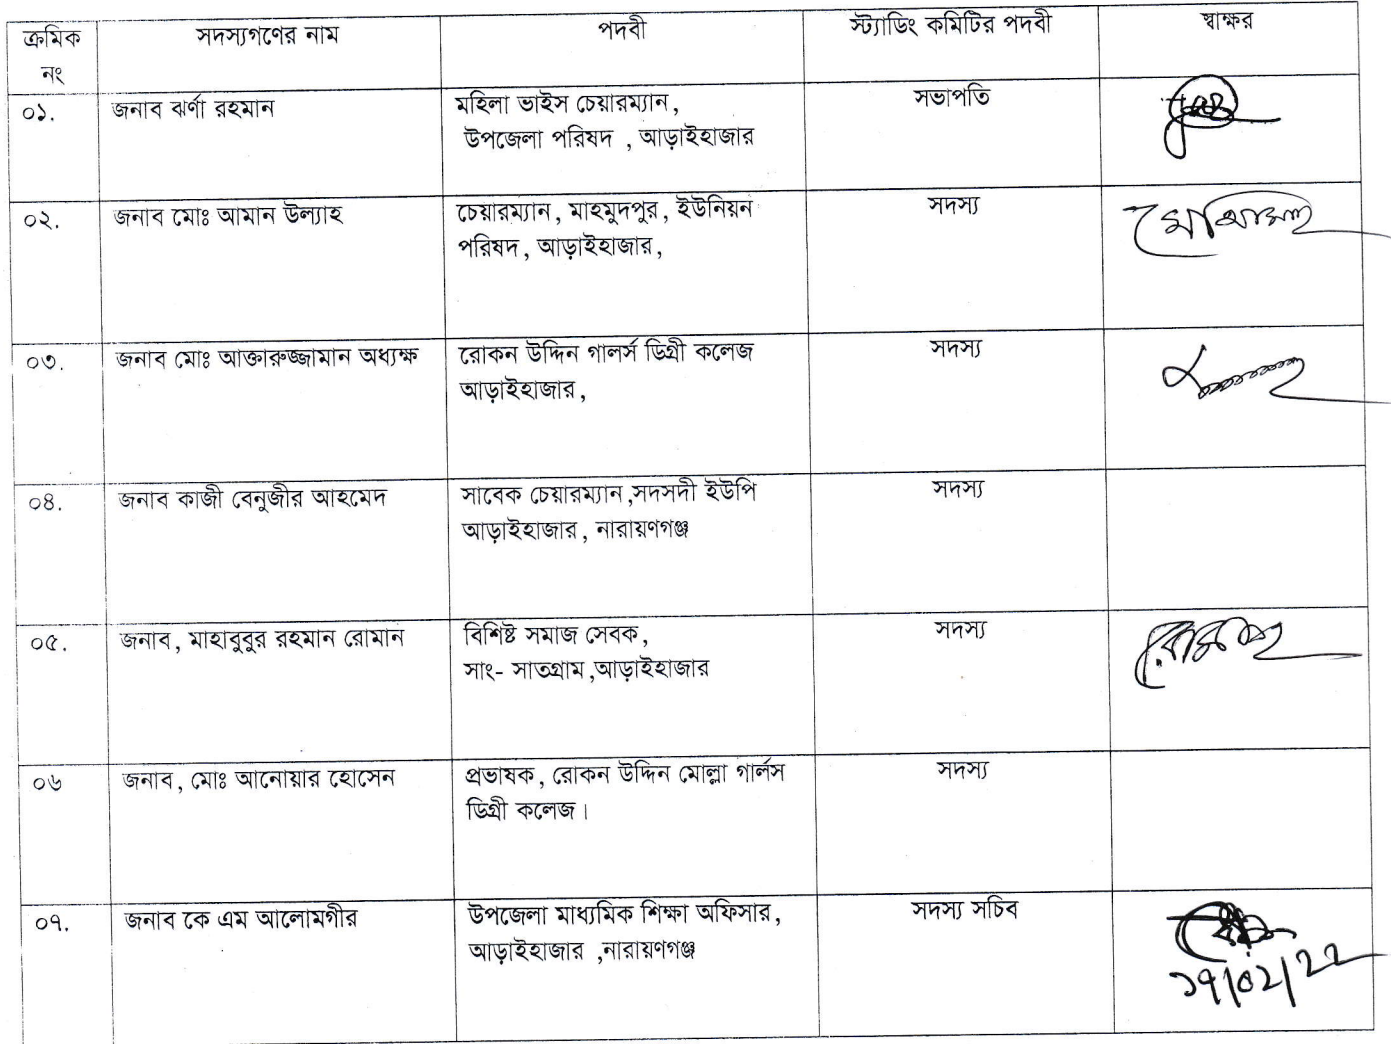 ক্রমিক নং সদস্যগণের নাম পদবী স্ট্যাডিং কমিটির পদবী স্বাক্ষর
০১. জনাব ঝর্ণা রহমান মহিলা ভাইস চেয়ারম্যান, সভাপতি
উপজেলা পরিষদ , আড়াইহাজার
০২. জনাব মোঃ আমান উল্যাহ চেয়ারম্যান, মাহমুদপুর, ইউনিয়ন সদস্য
পরিষদ, আড়াইহাজার,
০৩. জনাব মোঃ আক্তারুজ্জামান অধ্যক্ষ রোকন উদ্দিন গালর্স ডিগ্রী কলেজ সদস্য
আড়াইহাজার,
০৪. জনাব কাজী বেনুজীর আহমেদ সাবেক চেয়ারম্যান,সদসদী ইউপি সদস্য
আড়াইহাজার, নারায়ণগঞ্জ
০৫. জনাব, মাহাবুবুর রহমান রোমান বিশিষ্ট সমাজ সেবক, সদস্য
সাং- সাতগ্রাম,আড়াইহাজার
০৬ জনাব, মোঃ আনোয়ার হোসেন প্রভাষক, রোকন উদ্দিন মোল্লা গার্লস সদস্য
ডিগ্রী কলেজ।
০৭. জনাব কে এম আলোমগীর উপজেলা মাধ্যমিক শিক্ষা অফিসার, সদস্য সচিব
আড়াইহাজার ,নারায়ণগঞ্জ
১৭/০২/২২